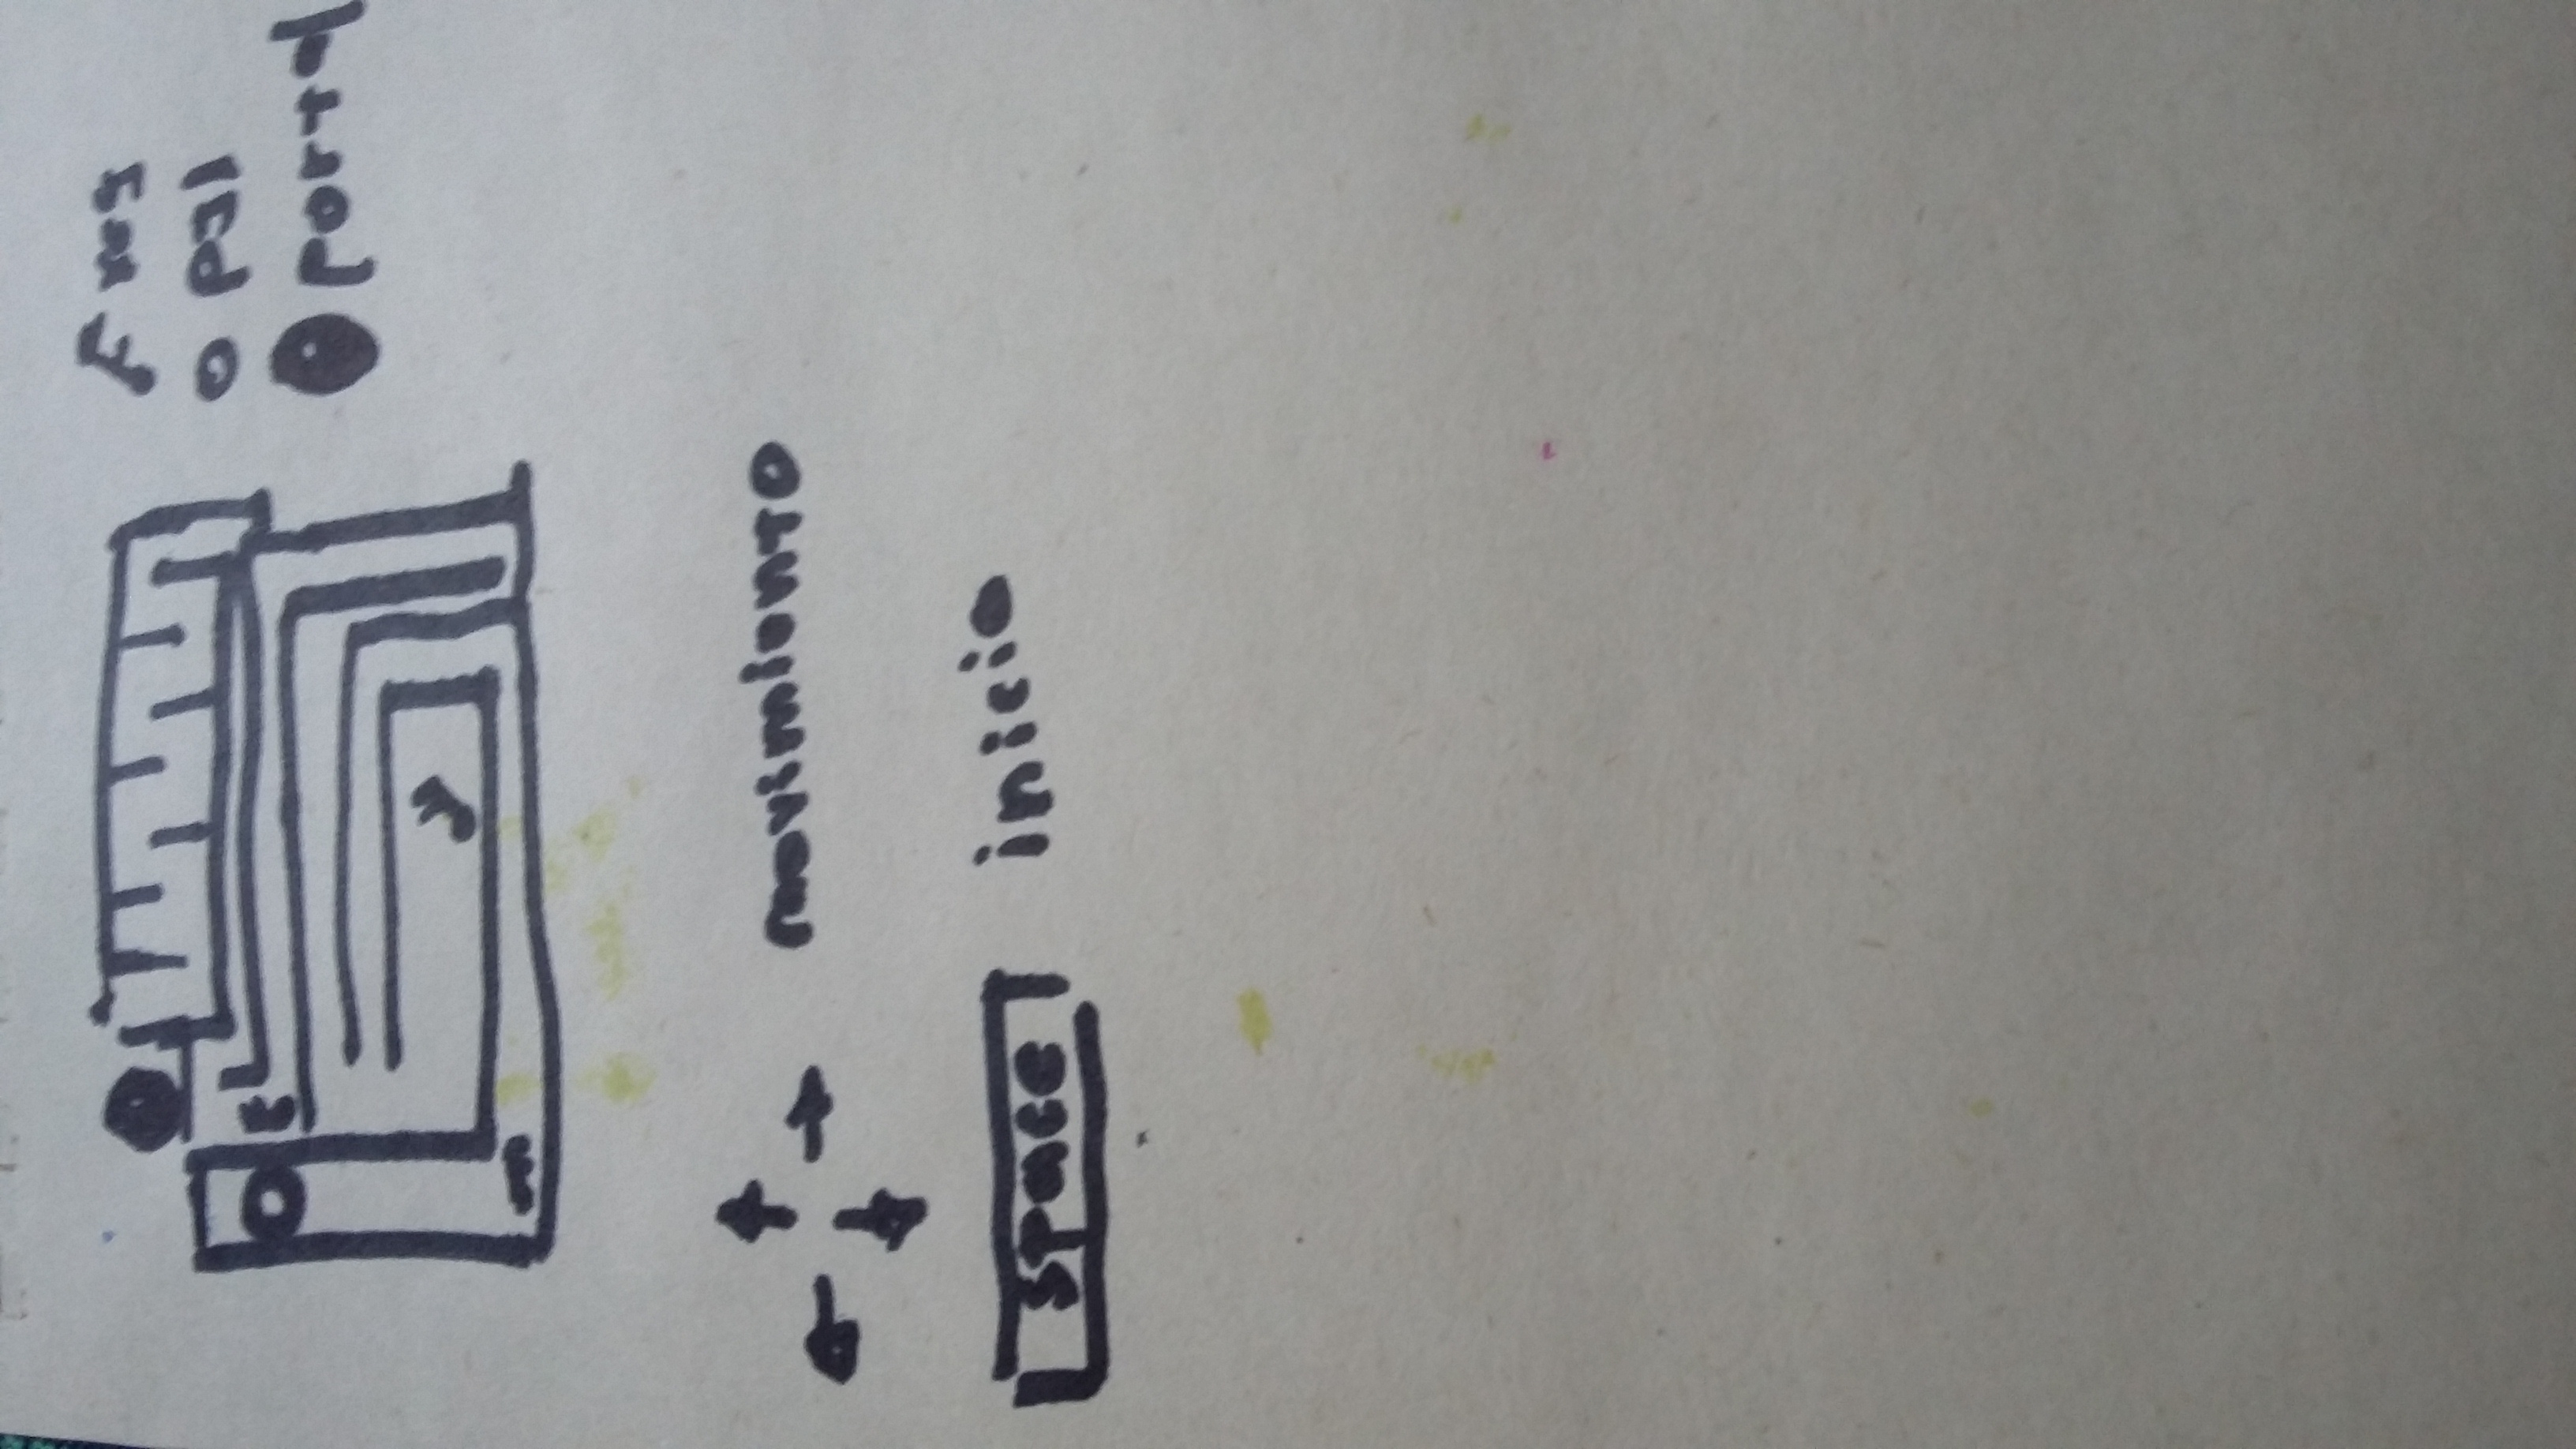 key
psl
portal
movimiento
space inicio